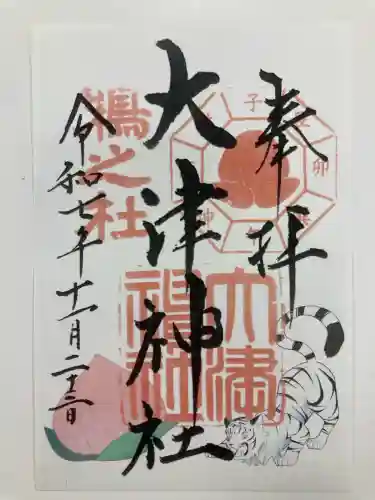 奉拝
大津神社
令和七年十一月二十三日
鵺之社
大津
神社
子
卯